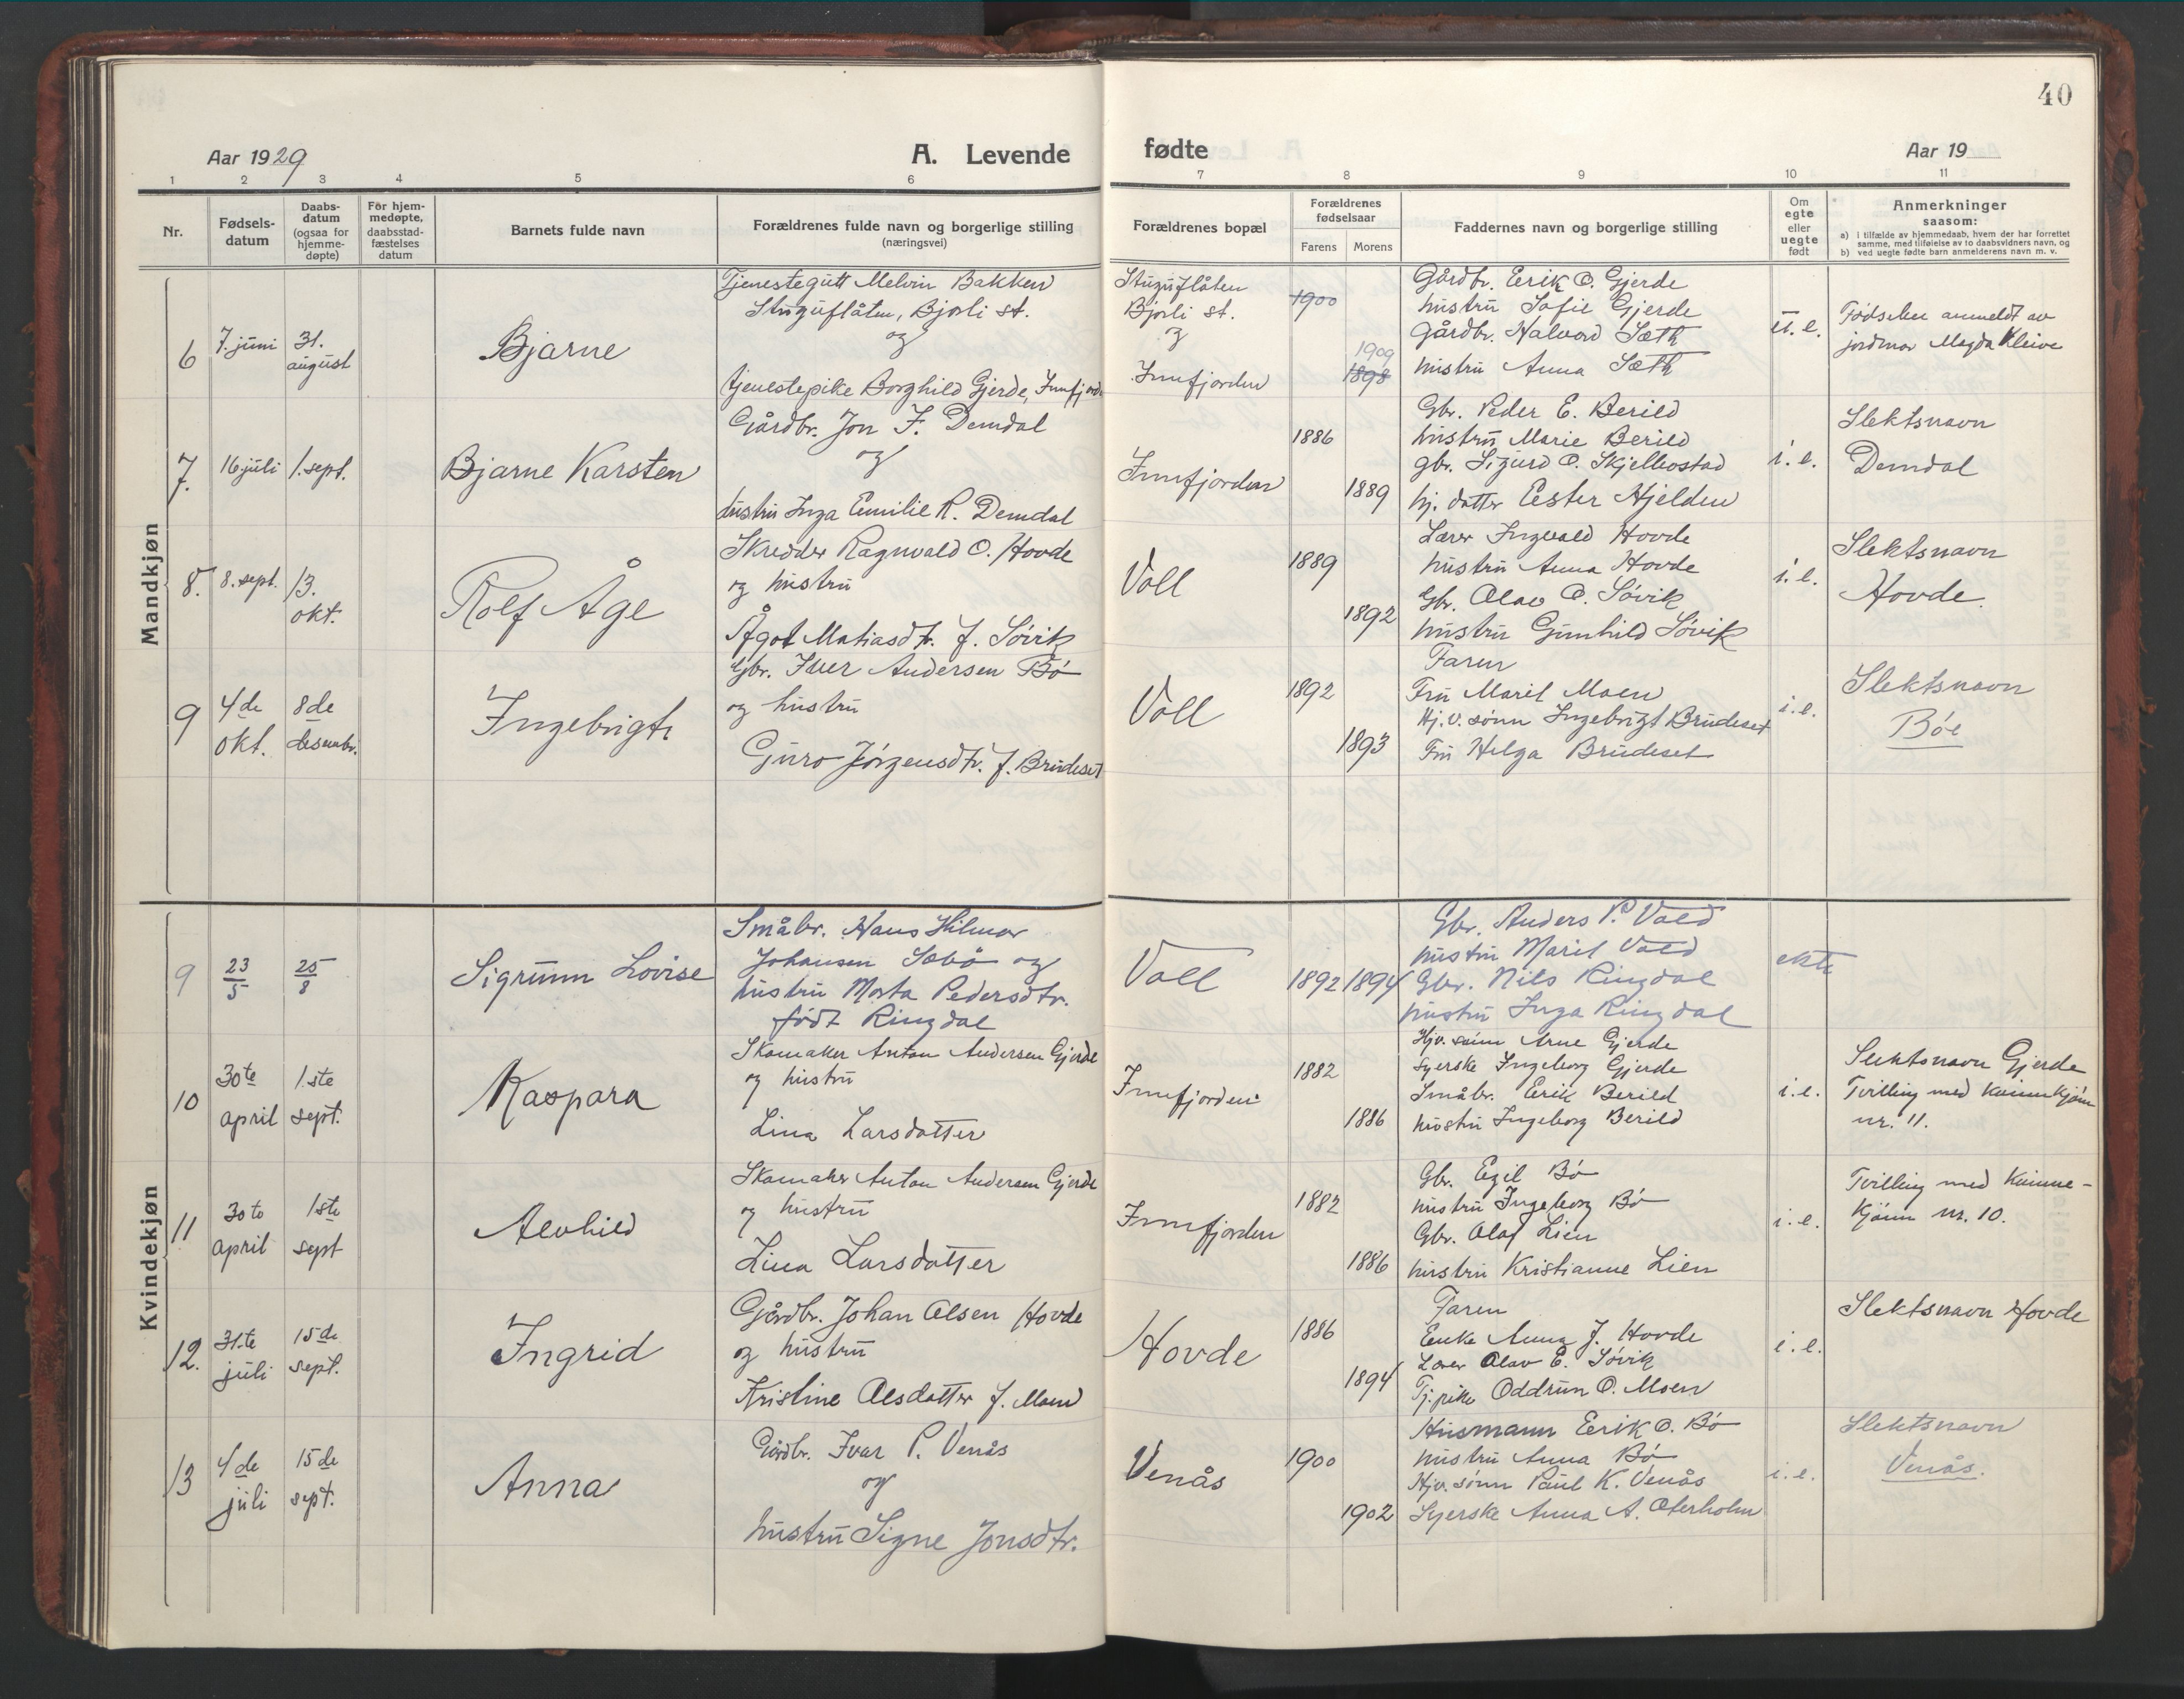 40
Aar 1929
A. Levende fødte
Aar 19
1 2 3 4 5 6 7 8 9 10 11
Nr.
Fødsels-
datum
Daabs-
datum
(ogsaa for
hjemme-
døpte)
För hjem-
medøpte,
daabsstad-
fæstelses
datum
Barnets fulde navn
Forældrenes fulde navn og borgerlige stilling
(næringsvei)
Forældrenes bopæl
Forældrenes
fødselsaar
Farens Morens
Faddernes navn og borgerlige stilling
Om
egte
eller
uegte
født
Anmerkninger
saasom:
a) i tilfælde av hjemmedaab, hvem der har forrettet
samme, med tilføielse av to daabsvidners navn, og
b) ved uegte fødte barn anmelderens navn m. v.
Mandkjøn
6
7. juni
31.
august
Bjarne
Tjenestegutt Melvin Bakken
Stuguflåten, Bjorli st.
og
tjenestepike Borghild Gjerde, Innfjord
Stuguflåten
Bjorli st.
og
Innfjorden
1900
1909
1898
Gårdbr. Eerik O. Gjerde
hustru Sofie Gjerde
Gårdbr. Halvord Sæth
hustru Anna Sæth
u. e.
Fødselen anmeldt av
jordmor Magda Kleive
7.
16 juli
1. sept.
Bjarne Karsten
Gårdbr. Jon F. Demdal
og
hustru Inga Emilie R. Demdal
Innfjorden
1886
1889
Gbr. Peder E. Berild
hustru Marie Berild
gbr. Sigurd O. Skjelbostad
hj. datter Eester Hjelden
i. e.
Slektsnavn
Demdal
8.
8. sept.
13.
okt.
Rolf Åge
Skredder Ragnvald O. Hovde
og hustru
Ågot Matiasdtr. f. Søvik
Voll
1889
1892
Lærer Ingvald Hovde
hustru Anna Hovde
Gbr. Olav O. Søvik
hustru Gunhild Søvik
i. e.
Slektsnavn
Hovde.
9
4de
okt.
8de
desembr.
Ingebrigt
Gbr. Iver Andersen Bø
og hustru
Guro Jørgensdtr. f. Brudeset
Voll
1892
1893
Faren
Fru Marit Moen
Hj.v. sønn Ingebrigt Brudeset
Fru Helga Brudeset
i. e.
Slektsnavn
Bøe
Kvindekjøn
9
23
5
25
8
Sigrunn Lovise
Småbr. Hans Hilmar
Johansen Sæbø og
hustru Marta Pedersdtr.
født Ringdal
Voll
1892 1894
Gbr. Anders P. Vold
hustru Marit Vold
Gbr. Nils Ringdal
hustru Inga Ringdal
ekte
10
30te
april
1ste
sept.
Kaspara
Skomaker Anton Andersen Gjerde
og hustru
Lina Larsdatter
Innfjorden
1882
1886
Hjv. sønn Arne Gjerde
syerske Ingeborg Gjerde
Småbr. Eerik Berild
hustru Ingeborg Berild
i. e.
Slektsnavn Gjerde
Tvilling med kvinnkjønn
nr. 11.
11
30te
april
1ste
sept
Alvhild
Skomaker Anton Andersen Gjerde
og hustru
Lina Larsdatter
Innfjorden
1882
1886
Gbr. Egil Bø
hustru Ingeborg Bø
Gbr. Olaf Lien
hustru Kristianne Lien
i. e.
Tvilling med kvinne-
kjønn nr. 10.
12.
31.te
juli
15de
sept.
Ingrid
Gårdbr. Johan Olsen Hovde
og hustru
Kristine Olsdatter f. Moen
Hovde
1886
1894
Faren
Enke Anna J. Hovde
Lærer Olav E. Søvik
Tj. pike Oddrun O. Moen
i. e.
Slektsnavn Hovde
13
4de
juli
15de
sept.
Anna
Gårdbr. Ivar P. Venås
og
hustru Signe Jonsdtr.
Venås
1900
1902
Husmann Eerik O. Bø
hustru Anna Bø
Hjv. sønn Paul K. Venås
Syerske Anna A. Oterholm
i. e.
Slektsnavn
Venås.